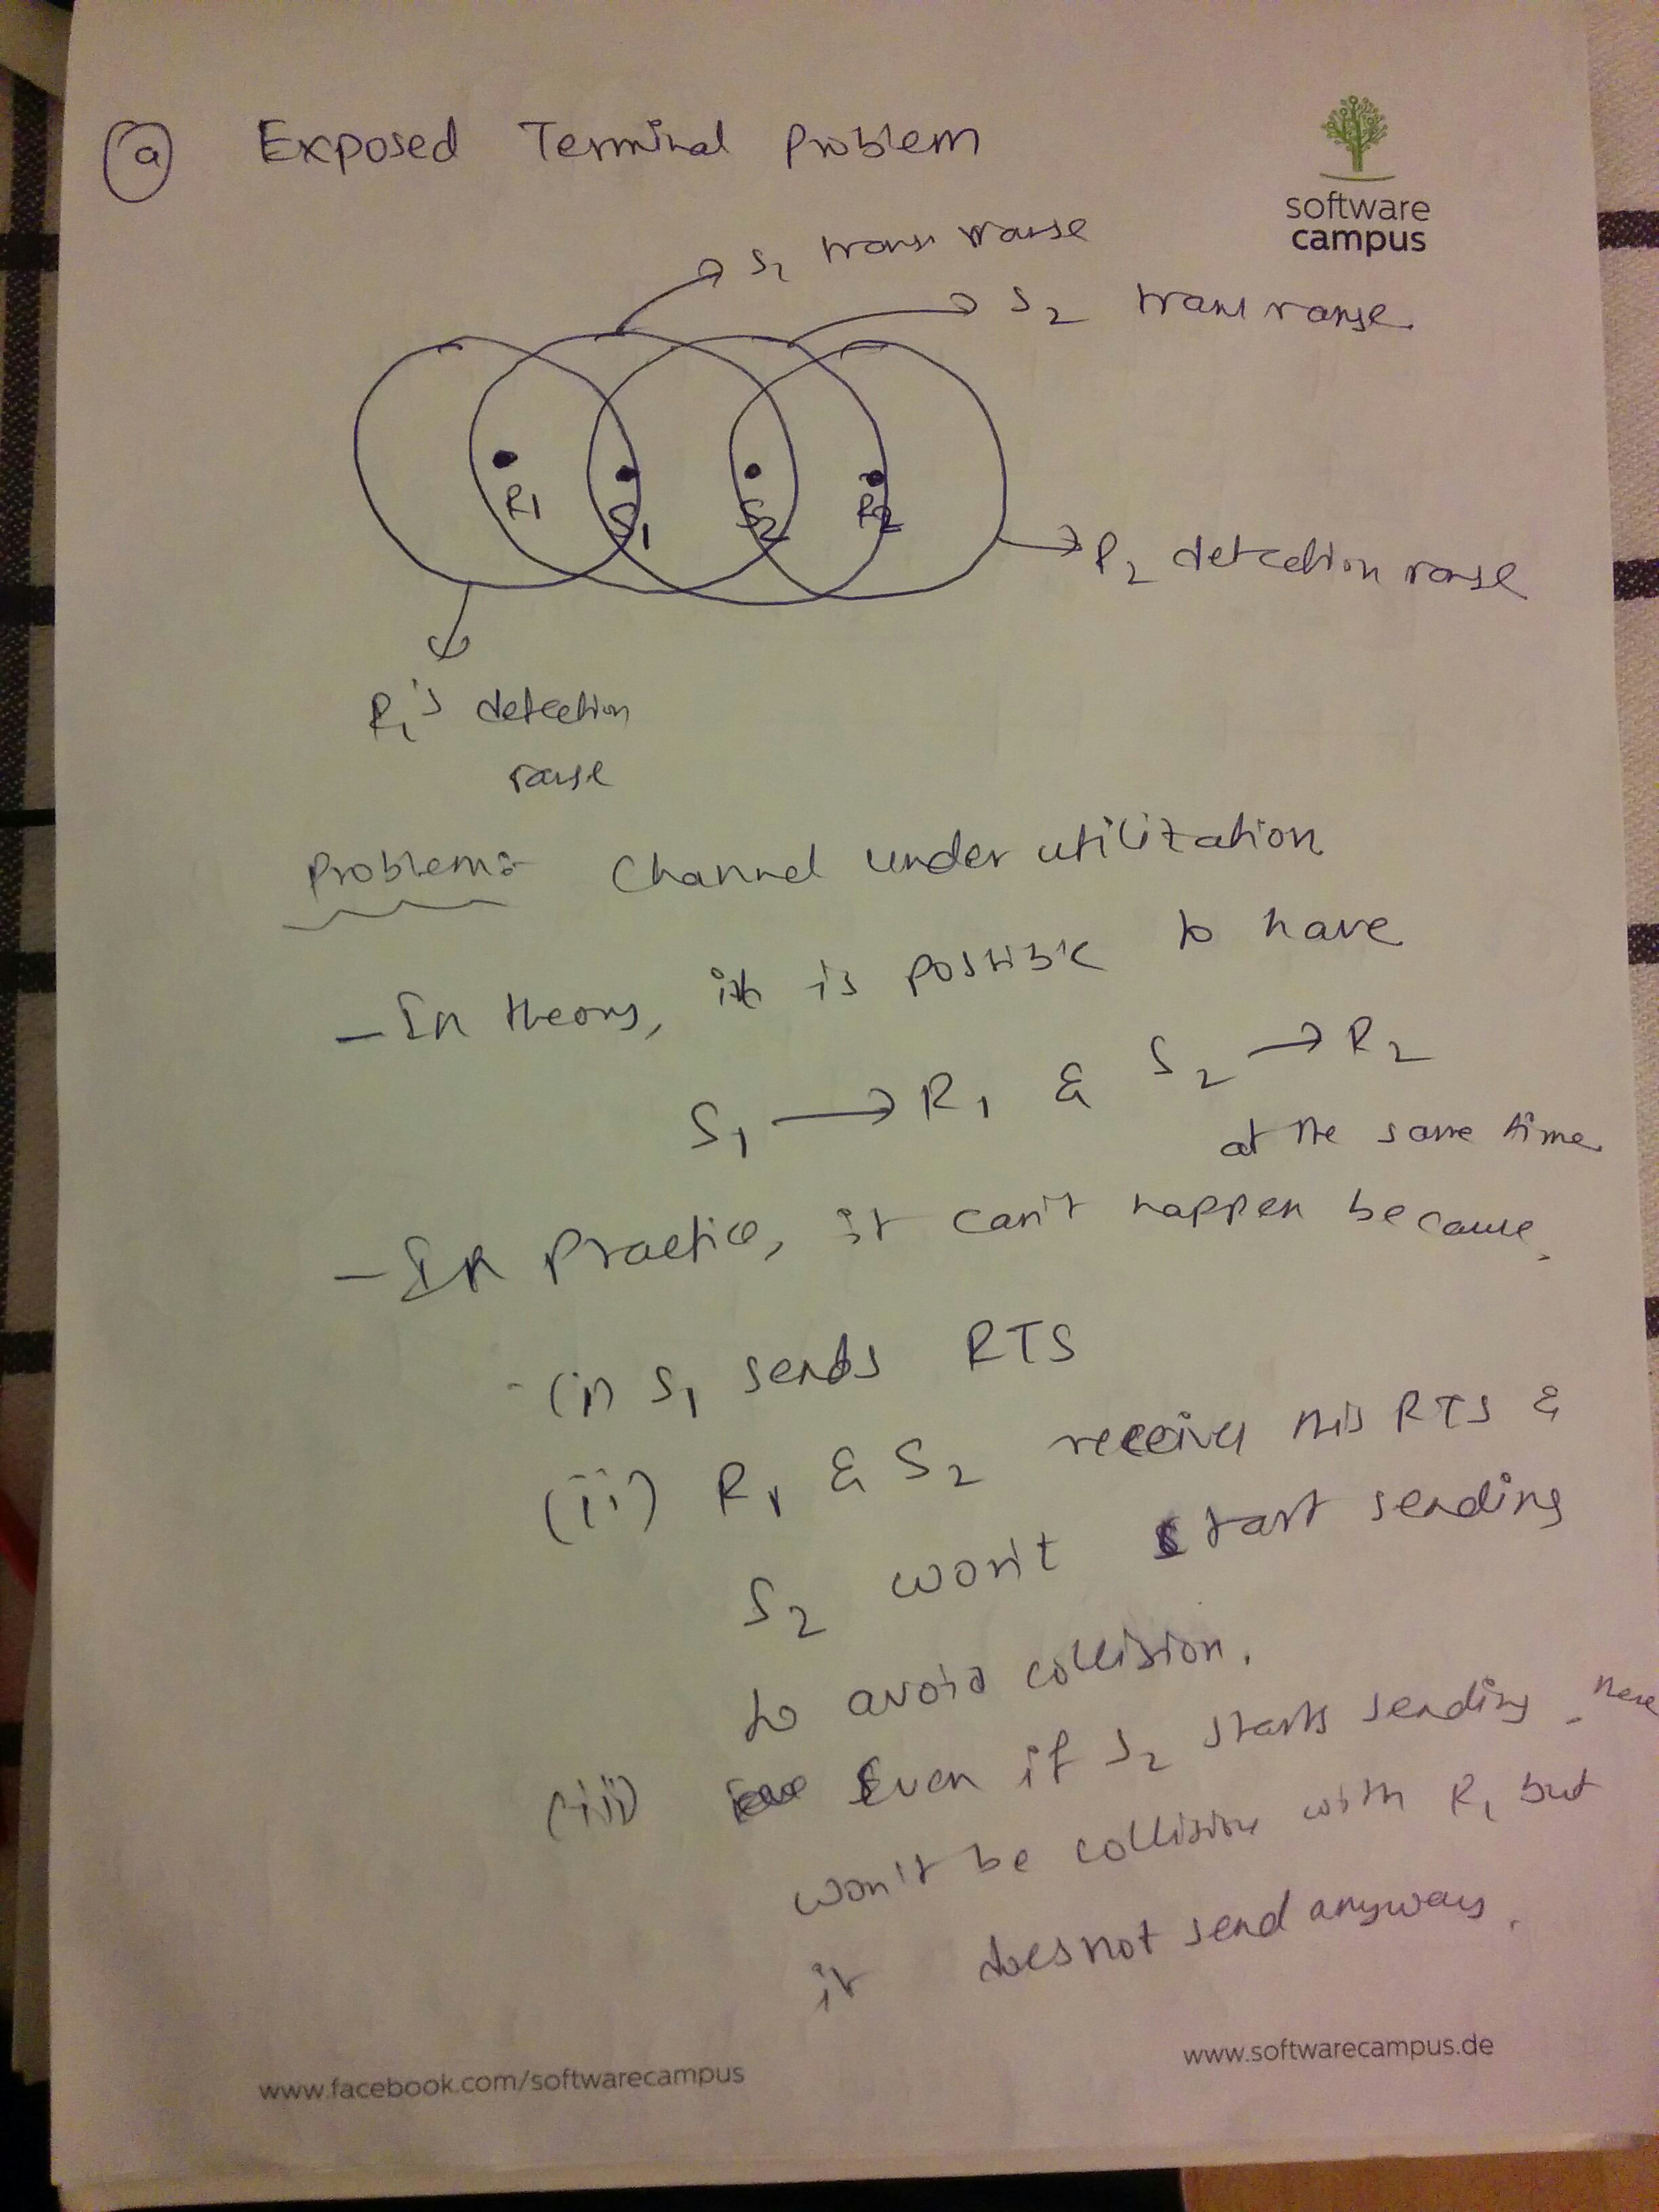 a Exposed Terminal Problem
software
campus
S1 trans range
S2 trans range
R1 S1 S2 R2
R2 detection range
R1's detection
range
Problem:- Channel under utilization
- In theory, it is possible to have
S1 → R1 & S2 → R2
at the same time
- In Practice, it can't happen because,
(i) S1 sends RTS
(ii) R1 & S2 receives this RTS &
S2 won't start sending
to avoid collision.
(iii) Even if S2 starts sending, there
won't be collision with R1 but
it does not send anyways.
www.softwarecampus.de
www.facebook.com/softwarecampus